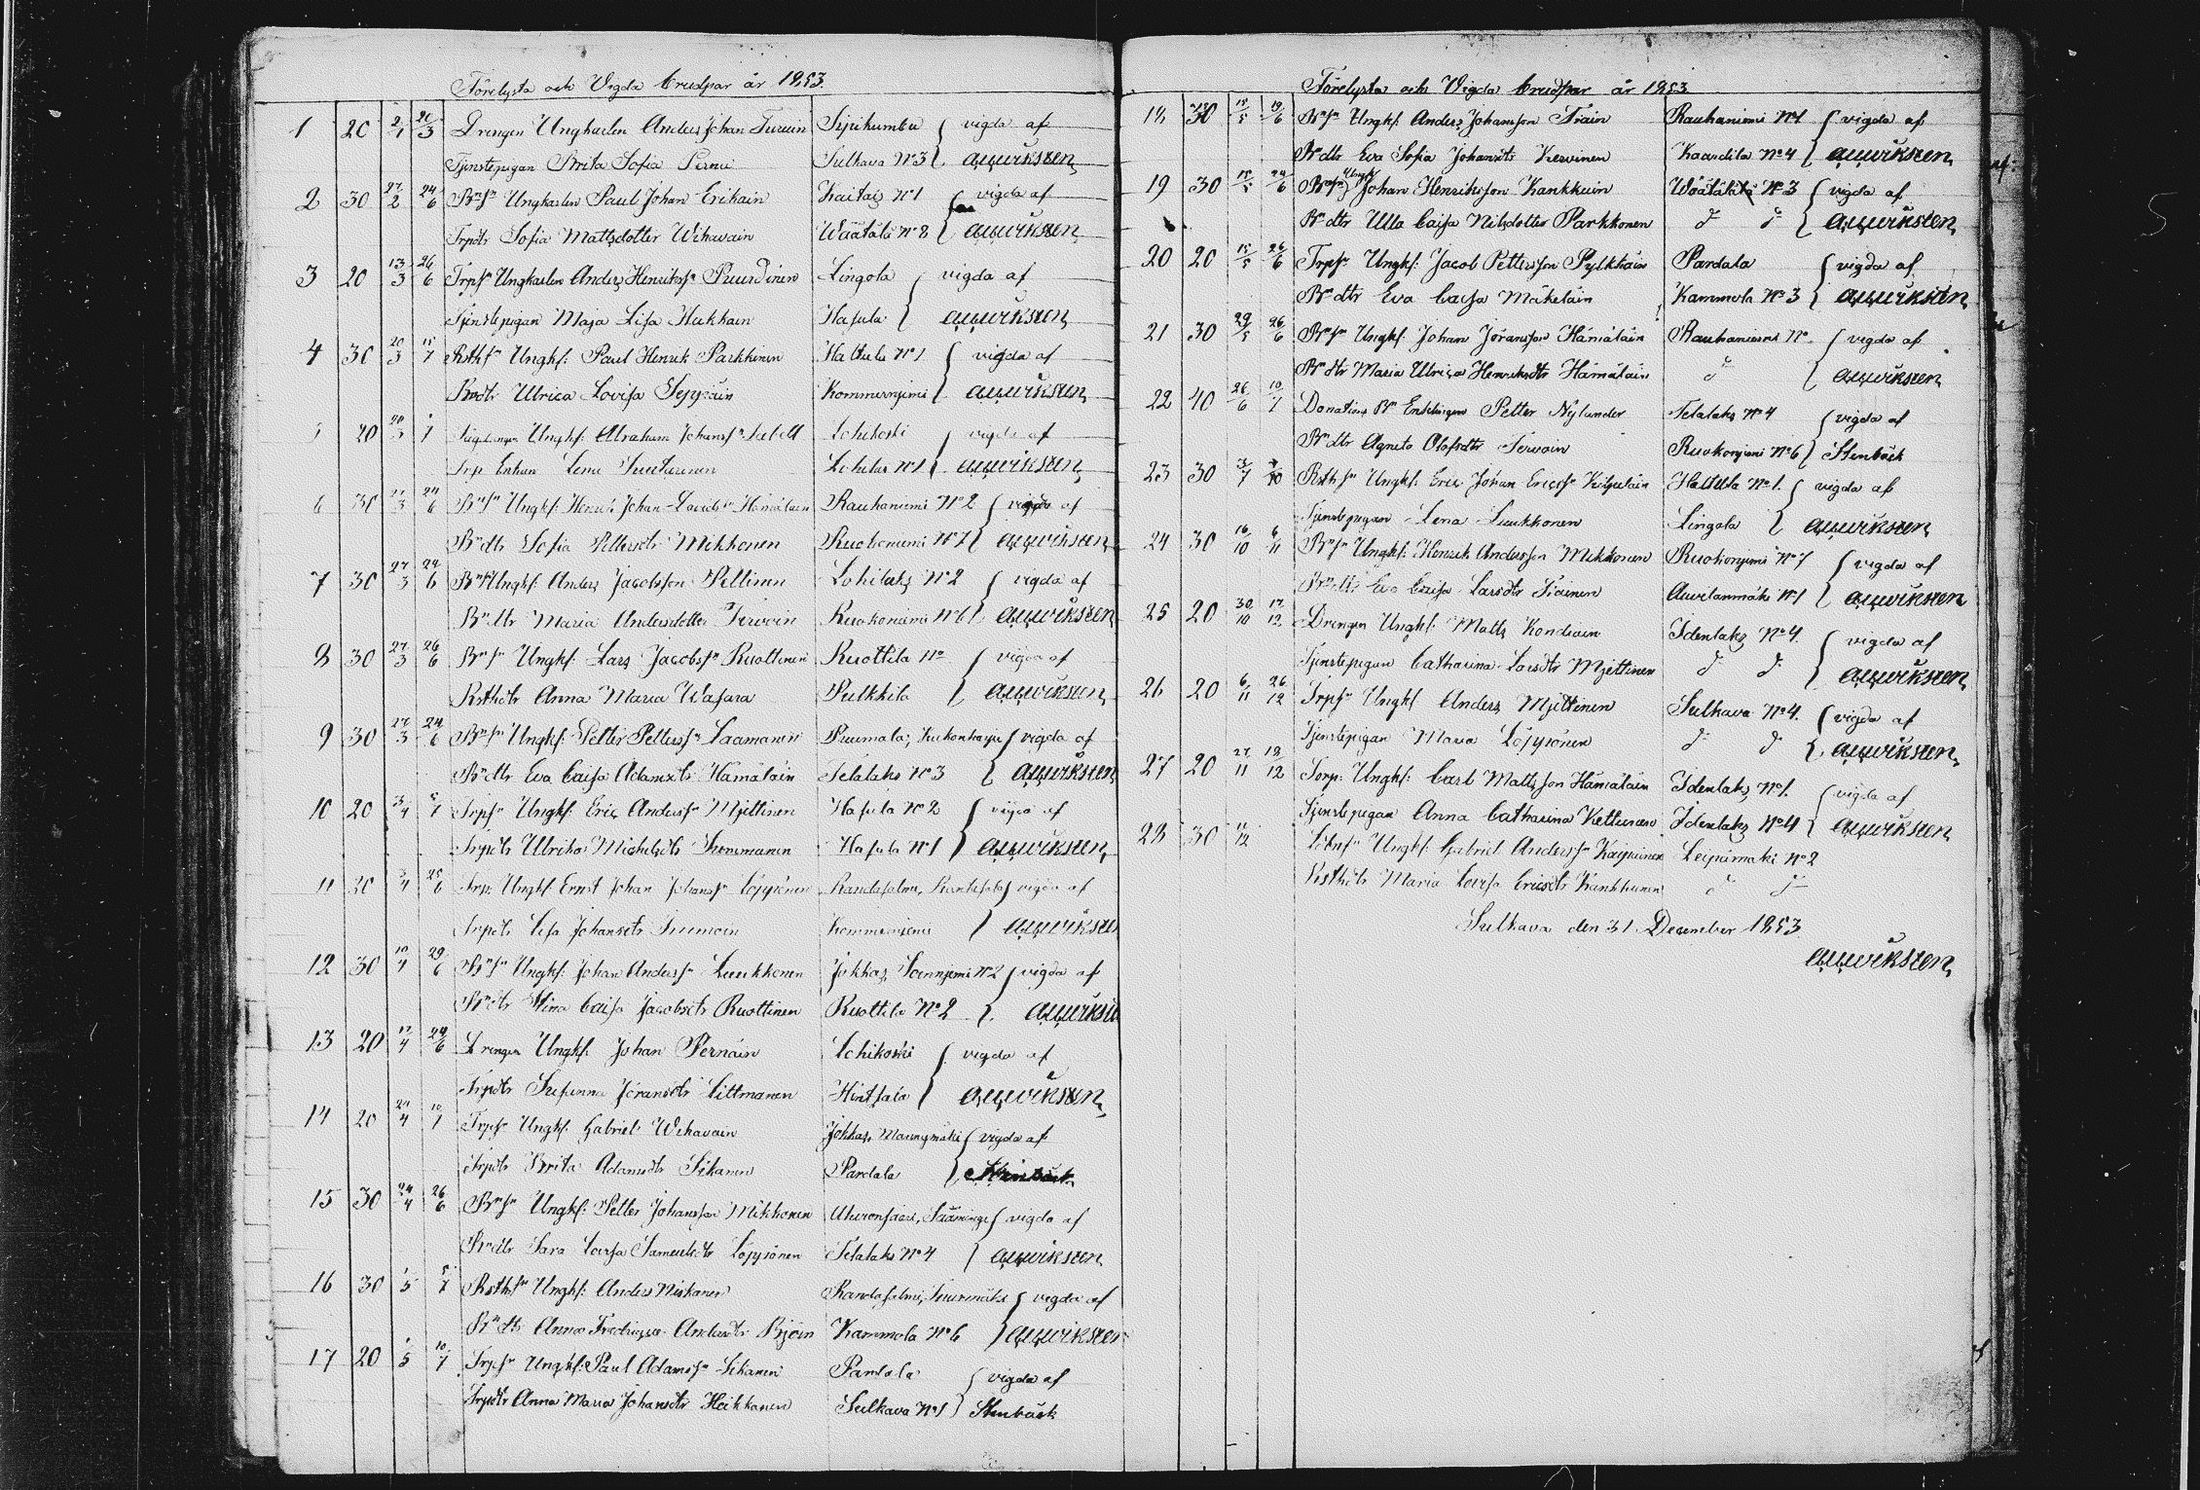 Förelysta och Vigda brudpar år 1853.
1 20 2/1 20/3 Drengen Ungkarlen Anders Johan Turuin Sipikumbu vigda af
Tjenstepigan Brita Sofia Pernu Sulkava No 3 AWiksten
2 30 27/2 24/6 Bns Ungkarlen Paul Johan Erikain Kaitais No 1 vigda af
Trpdtr Sofia Mattsdotter Wihavain Wäätälä No 8 AWiksten
3 20 13/3 26/6 Trpsn Ungkarlen Anders Henrikssn Puurdinen Lingola vigda af
Tjenstepigan Maja Lisa Kukkain Hasula AWiksten
4 30 20/3 15/7 Rsthsn Ungkf: Paul Henrik Parkkinen Halttula No 1 vigda af
Bndtr Ulrica Lovisa Seppäin Kommerniemi AWiksten
20 Ungkf: Abraham Johanss Lohikoski vigda af
Trp Enkan Lena Lohilax No 1 AWiksten
6 30 27/3 24/6 Bnsn Ungkf: Henrik Johan Hämäläin Rauhaniemi No 2 vigda af
Bndtr Sofia Pettersdtr Mikkonen Ruokoniemi No 7 AWiksten
7 30 27/3 24/6 Bns Ungkf: Anders Jacobsson Pellinen Lohilaks No 2 vigda af
Bndtr Maria Andersdotter Tervoin Ruokoniemi No 6 AWiksten
8 30 27/3 26/6 Bnsn Ungkf: Lars Jacobssn Ruottinen Ruottila No vigda af
Rsthdtr Anna Maria Wasara Pulkkila AWiksten
9 30 27/3 24/6 Bnsn Ungkf: Petter Petterssn Laamanen Puumala, Kukonharju vigda af
Bndtr Eva Caisa Adamsdtr Hämäläin Telalaks No 3 AWiksten
10 20 3/4 5/7 Trpsn Ungkf: Eric Anderssn Mjettinen Hasula No 2 vigda af
Trpdtr Ulrika Michelsdtr Immanen Hasula No 1 AWiksten
11 20 3/4 25/6 Trp: Ungkf: Ernst Johan Johanss Löppönen Randasalmi, vigda af
Trpdtr Lisa Johansdtr Kommerniemi AWiksten
12 30 10/4 29/6 Bnsn Ungkf: Johan Anderssn Luukkonen Jokkas, No 2 vigda af
Bndtr Stina Caisa Jacobsdtr Ruottinen Ruottila No 2 AWikste
13 20 17/4 24/6 Drengen Ungkf: Johan Pernäin Lohikoski vigda af
Trpdtr Susanna Göransdtr Littmanen Hirtsala AWiksten
14 20 24/4 10/7 Trpsn Ungkf: Gabriel Wihavain Jokkas, vigda af
Trpdtr Brita Adamsdtr Sikanen Pardala Stenbäck
15 30 24/4 26/6 Bnsn Ungkf: Petter Johansson Mikkonen Sääminge vigda af
Bndtr Sara Lovisa Samuelsdtr Löppönen Telalaks No 4 AWiksten
16 30 1/5 5/7 Rsthsn Ungkf: Anders Niskanen Randasalmi, vigda af
Bndtr Anna Fredrica Andersdtr Björn Kammola No 6 AWiksten
17 20 1/5 10/7 Trpsn Ungkf: Paul Adamssn Sikanen Pardala vigda af
Trpdtr Anna Maria Johansdtr Heikkanen Sulkava No 1 Stenbäck
Förelysta och Vigda brudpar år 1853
18 30 15/5 19/6 Bnsn Ungkf: Anders Johansson Tiain Rauhaniemi No 1 vigda af
Bndtr Eva Sofia Johansdtr Kervinen Kaardila No 4 AWiksten
19 30 15/5 24/6 Bnsn Ungkf Johan Henriksson Kankkuin Wäätälälä No 3 vigda af
Bndtr Ulla Caisa Nilsdotter Parkkonen d:o d:o AWiksten
20 20 15/5 26/6 Trpsn Ungkf: Jacob Pettersson Pylkkäin Pardala vigda af
Bndtr Eva Caisa Mäkeläin Kammola No 3 AWiksten
21 30 29/5 26/6 Bnsn Ungkf: Johan Göransson Hämäläin Rauhaniemi No vigda af
Bndtr Maria Ulrica Henriksdtr Hämäläin d:o AWiksten
22 40 26/6 10/7 Donations Bn Enklingen Petter Nylander Telalaks No 4 vigda af
Bndtr Agneta Olofsdtr Tervoin Ruokoniemi No 6 Stenbäck
23 30 3/7 /10 Rsthsn Ungkf: Eric Johan Ericss Halttula No 1. vigda af
Tjenstepigan Lena Luukkonen Lingola AWiksten
24 30 16/10 6/11 Bnsn Ungkf: Henrik Andersson Mikkonen Ruokoniemi No 7 vigda af
Bndtr Eva Caisa Larsdtr Tiainen Auvilanmäki No 1 AWiksten
25 20 30/10 17/12 Drengen Ungkf: Matts Kondiain Idenlaks No 4. vigda af
Tjenstepigan Catharina Larsdtr Mjettinen d:o d:o AWiksten
26 20 6/11 26/12 Trpsn Ungkf Anders Mjettinen Sulkava No 4. vigda af
Tjenstepigan Maria Löppönen d:o d:o AWiksten
27 20 27/11 18/12 Torp: Ungkf: Carl Mattsson Hämäläin Idenlaks, No 1. vigda af
Tjenstepigan Anna Catharina Kettunen Idenlaks No 4 AWiksten
28 30 11/12 Ungkf: Gabriel Anderssn Leipämäki No 2
Rsthdtr Maria Lovisa Ericsdtr Kankkunen d:o d:o
Sulkava den 31 December 1853.
AWiksten